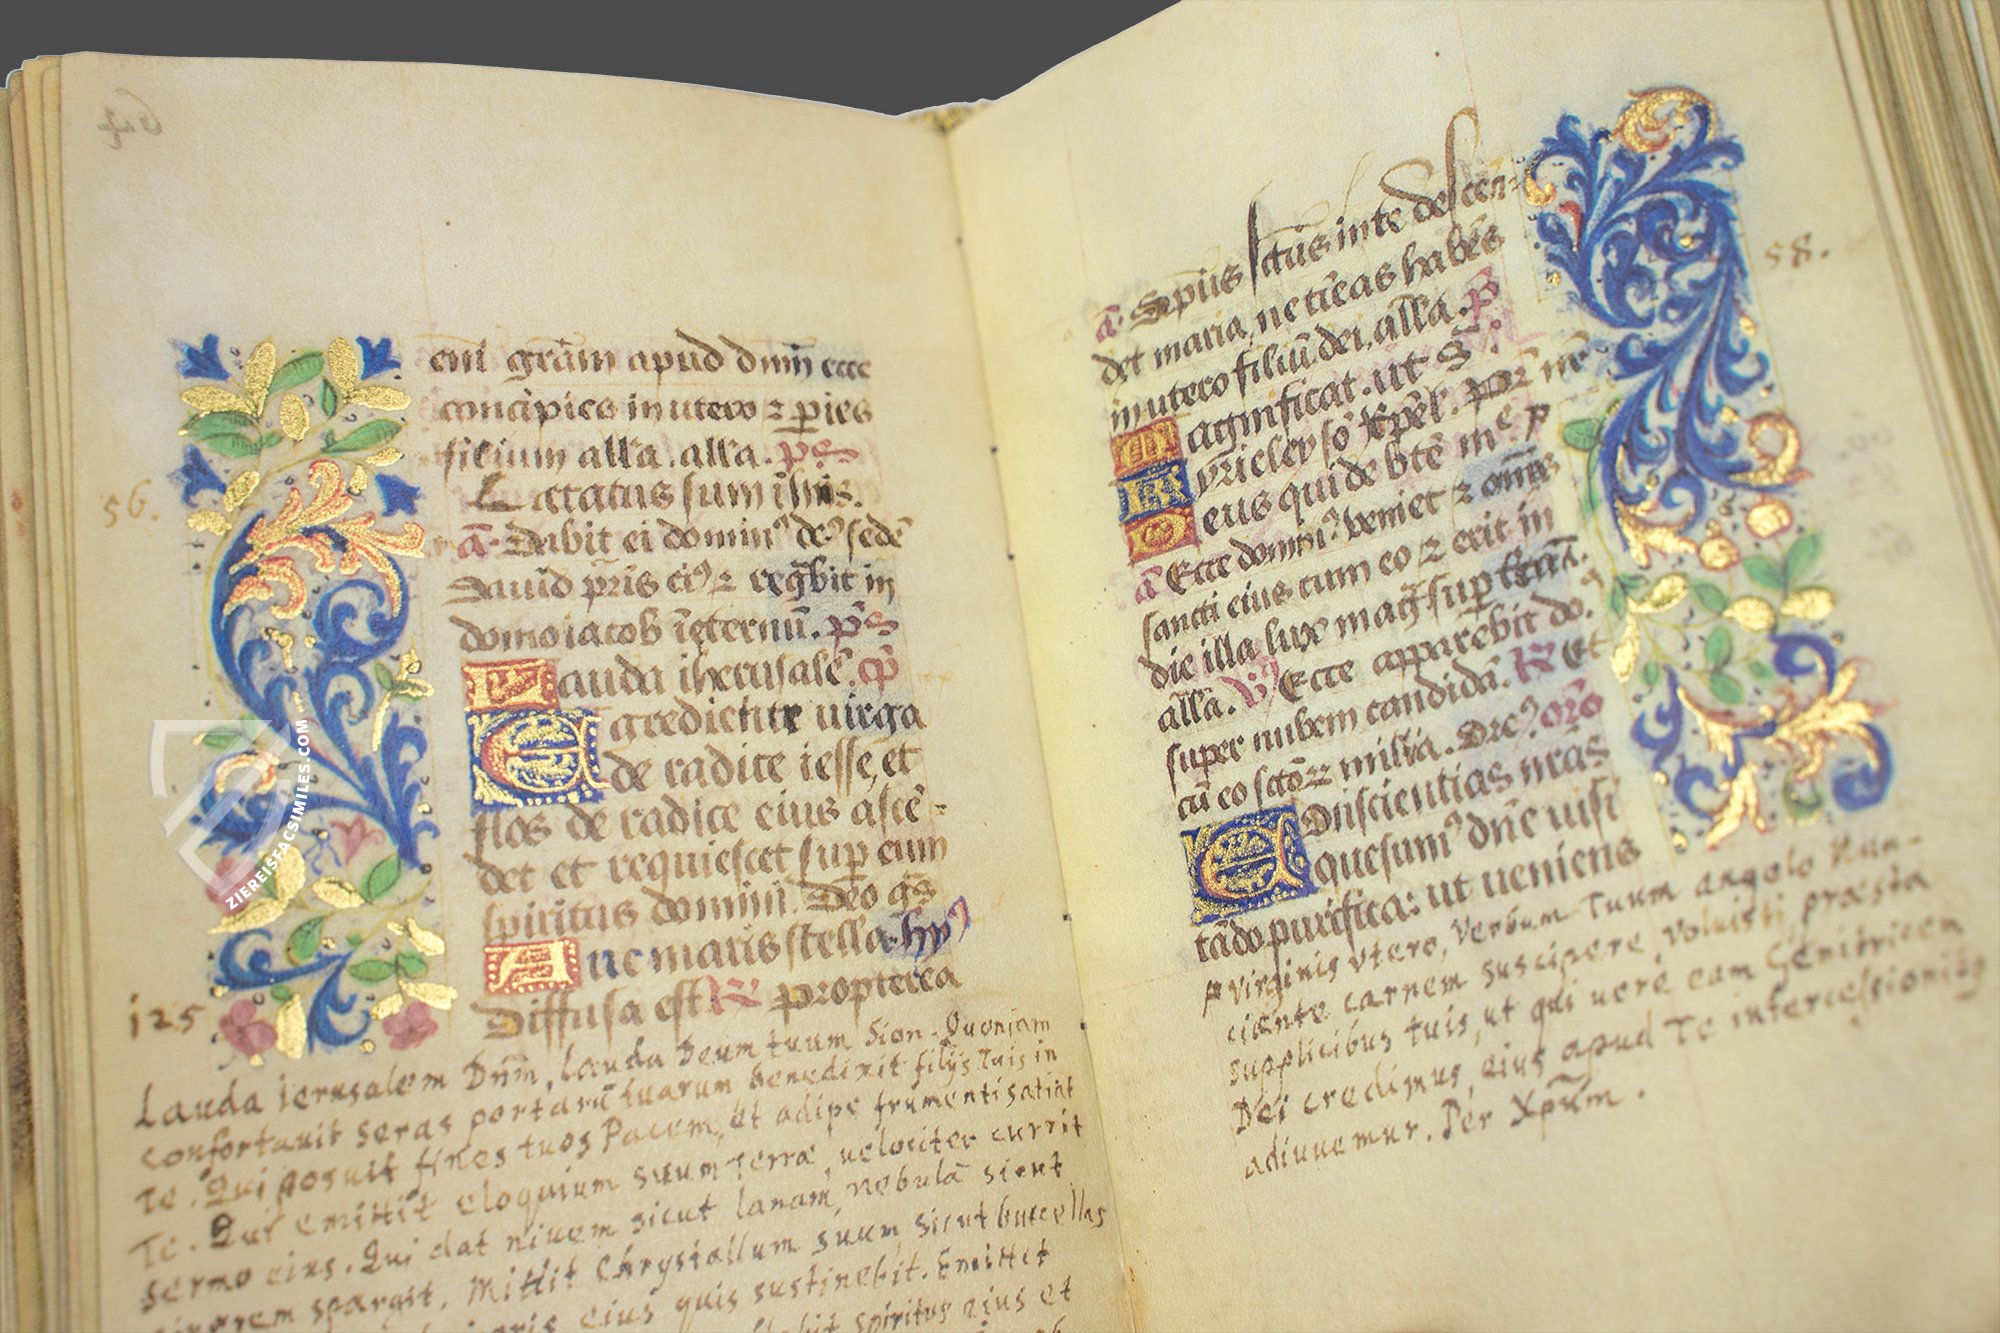 eni grām apud dmū ecce
concipies in utero ⁊ paries
filium all'a. all'a. ps.
Lætatus sum i hiis.
ā. Dabit ei domin⁹ de⁹ sedē
David pr̄is ei⁹ ⁊ regn̄bit in
domo iacob ī eternū. ps
Lauda iherusalē. cp̄
Egredietur virga
de radice iesse, et
flos de radice eius ascē-
det et requiescet sup eum
spiritus domini. Deo gr̄s
Ave maris stella. hy⁹
Diffusa est ℟ propterea
56.
125
Lauda ierusalem Dn̄m, Lauda Deum tuum Sion. Quoniam
confortauit seras portarū tuarum benedixit filijs tuis in
Te. Qui posuit fines tuos Pacem, et adipe frumenti satiat
Te. Qui emittit eloquium suum Terræ, uelociter currit
sermo eius. Qui dat niuem sicut lanam, nebulā sicut
cinerem spargit. Mittit Chrystallum suum sicut buccellas
eius quis sustinebit. Emittet
spiritus eius et
ā. Spūs sctūs in te descen-
det maria, ne timeas habēs
in utero filiū dei. all'a. p̄
Magnificat. ut S.
Kyrieleyson Xp̄el. pr̄ nr̄
Deus qui de btē mᵉ p
ā Ecce domin⁹ veniet ⁊ omēs
sancti eius cum eo ⁊ erit in
die illa lux maḡ sup terrā.
all'a. ℣ Ecce apparebit do.
super nubem candidā. ℟ Et
cū eo sctō⁊ milia. Ore⁹ orō
Cōnscientias nr̄as
quesum⁹ dn̄e visi
tādo purifica: ut veniens
58.
Virginis Vtero, Verbum Tuum angelo Nun-
ciante carnem suscipere voluisti, præsta
supplicibus tuis, ut qui uere eam Genitricem
Dei credimus, eius apud Te intercessionibus
adiuuemur. Per Xp̄um.
ZIEREISFACSIMILES.COM